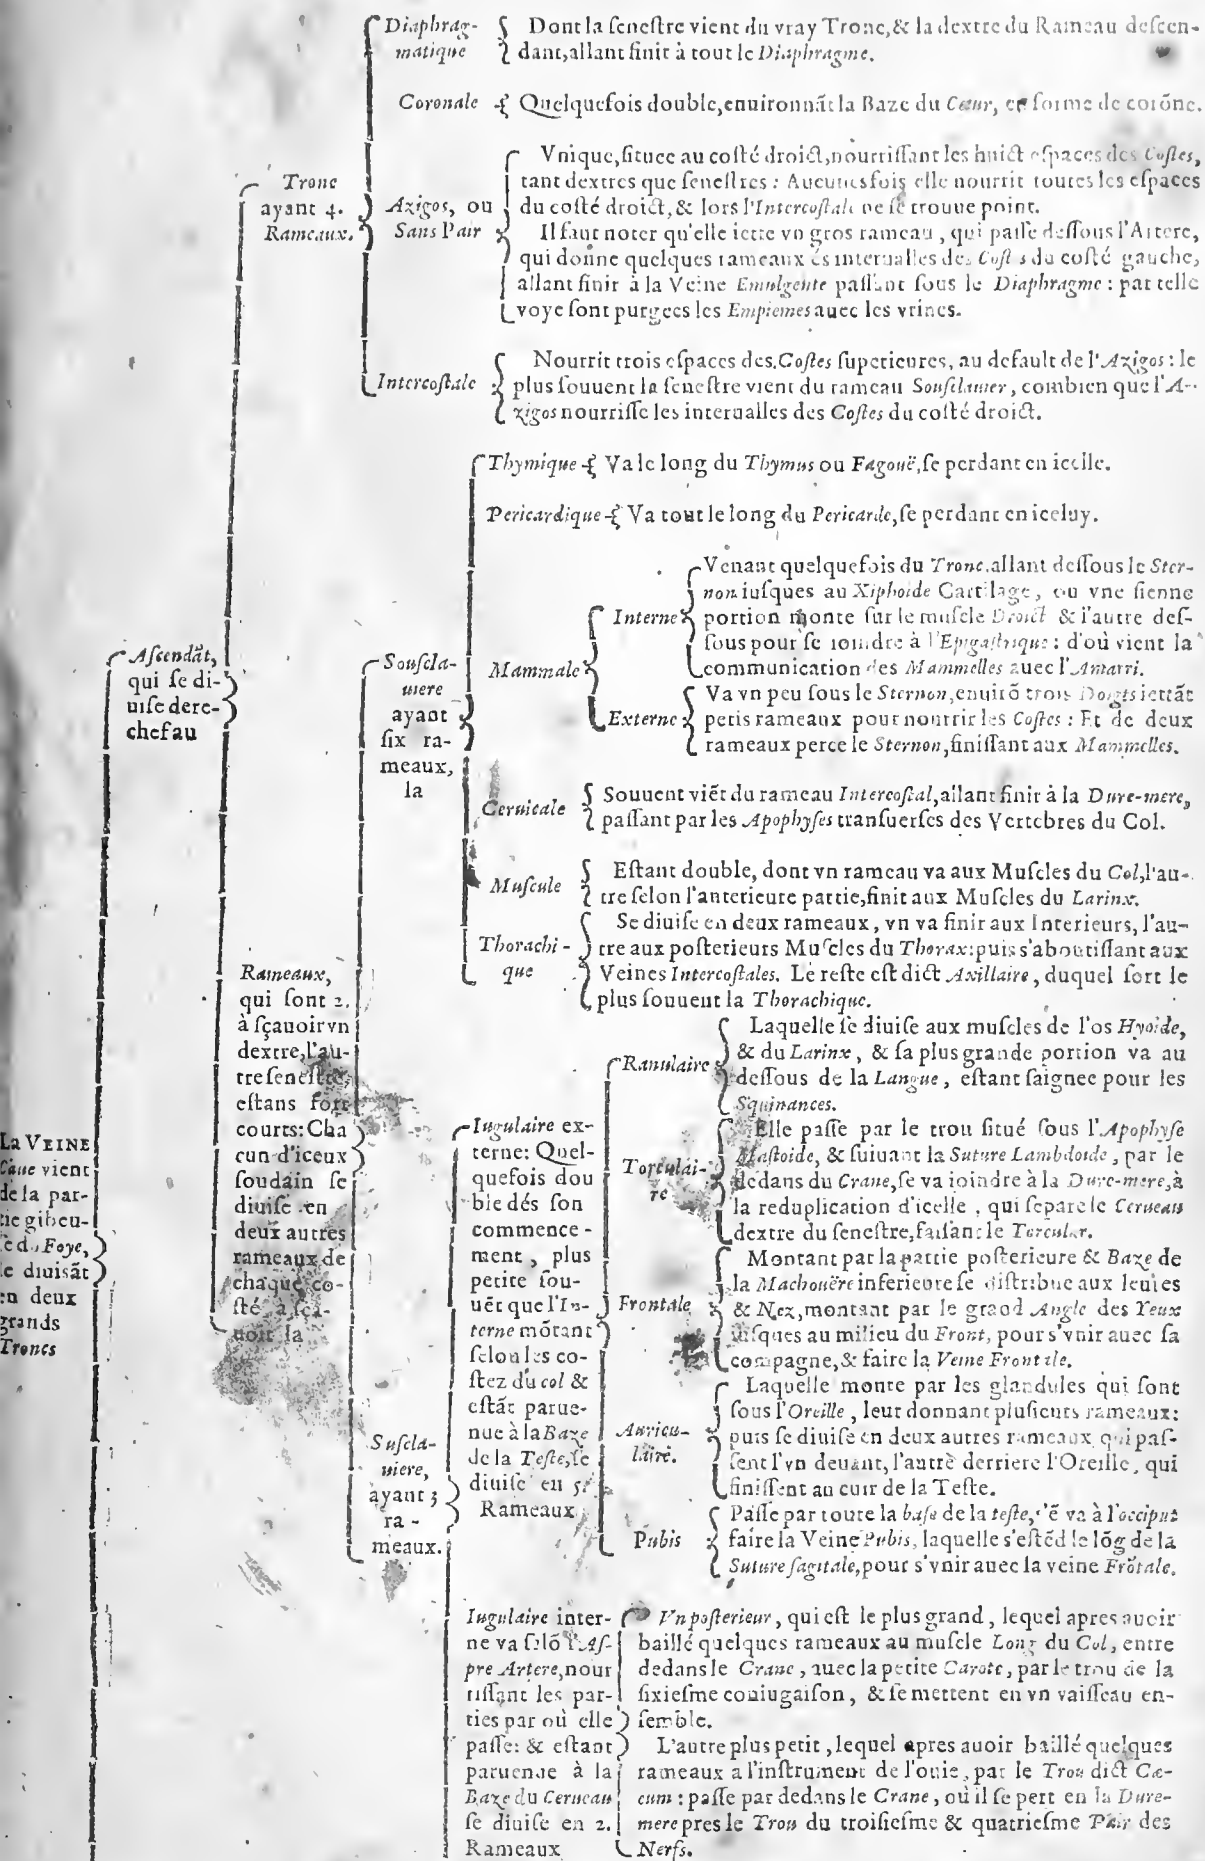 La VEINE
Caue vient
de la par-
tie gibeu-
se du Foye,
se diuisãt
en deux
grands
Troncs
Aſcendãt,
qui ſe di-
uiſe dere-
chef au
Tronc
ayant 4.
Rameaux.
Diaphrag-
matique
Dont la ſeneſtre vient du vray Tronc, & la dextre du Rameau deſcen-
dant, allant finir à tout le Diaphragme.
Coronale
Quelquefois double, enuironnãt la Baze du Cœur, en forme de corõne.
Azigos, ou
Sans Pair
Vnique, ſituee au coſté droict, nourriſſant les huict eſpaces des Coſtes,
tant dextres que ſeneſtres : Aucunesfois elle nourrit toutes les eſpaces
du coſté droict, & lors l'Intercoſtale ne ſe trouue point.
Il faut noter qu'elle iette vn gros rameau, qui paſſe deſſous l'Artere,
qui donne quelques rameaux és interualles des Coſtes du coſté gauche,
allant finir à la Veine Emulgente paſſant ſous le Diaphragme : par telle
voye ſont purgees les Empiemes auec les vrines.
Intercoſtale
Nourrit trois eſpaces des Coſtes ſuperieures, au default de l'Azigos : le
plus ſouuent la ſeneſtre vient du rameau Souſclauier, combien que l'A-
zigos nourriſſe les interualles des Coſtes du coſté droict.
Rameaux,
qui ſont 2.
à ſçauoir vn
dextre, l'au-
tre ſeneſtre,
eſtans fort
courts: Cha
cun d'iceux
ſoudain ſe
diuiſe en
deux autres
rameaux de
chaque co-
ſté à ſça-
uoir la
Souſcla-
uiere
ayant
ſix ra-
meaux,
la
Thymique
Va le long du Thymus ou Fagouë, ſe perdant en icelle.
Pericardique
Va tout le long du Pericarde, ſe perdant en iceluy.
Mammale
Interne
Venant quelquefois du Tronc. allant deſſous le Ster-
non iuſques au Xiphoide Cartilage, ou vne ſienne
portion monte ſur le muſcle Droict & l'autre deſ-
ſous pour ſe ioindre à l'Epigaſtrique : d'où vient la
communication des Mammelles auec l'Amarri.
Externe
Va vn peu ſous le Sternon, enuirõ trois Doigts iettãt
petis rameaux pour nourrir les Coſtes : Et de deux
rameaux perce le Sternon, finiſſant aux Mammelles.
Ceruicale
Souuent viẽt du rameau Intercoſtal, allant finir à la Dure-mere,
paſſant par les Apophyſes tranſuerſes des Vertebres du Col.
Muſcule
Eſtant double, dont vn rameau va aux Muſcles du Col, l'au-
tre ſelon l'anterieure partie, finit aux Muſcles du Larinx.
Thorachi-
que
Se diuiſe en deux rameaux, vn va finir aux Interieurs, l'au-
tre aux poſterieurs Muſcles du Thorax: puis s'aboutiſſant aux
Veines Intercoſtales. Le reſte eſt dict Axillaire, duquel ſort le
plus ſouuent la Thorachique.
Suſcla-
uiere,
ayant 3
ra-
meaux.
Iugulaire ex-
terne: Quel-
quefois dou
ble dés ſon
commence-
ment, plus
petite ſou-
uẽt que l'In-
terne mõtant
ſelon les co-
ſtez du col &
eſtãt parue-
nue à la Baze
de la Teſte, ſe
diuiſe en 5.
Rameaux
Ranulaire
Laquelle ſe diuiſe aux muſcles de l'os Hyoide,
& du Larinx, & ſa plus grande portion va au
deſſous de la Langue, eſtant ſaignee pour les
Squinances.
Torculai-
re
Elle paſſe par le trou ſitué ſous l'Apophyſe
Maſtoide, & ſuiuant la Suture Lambdoide, par le
dedans du Crane, ſe va ioindre à la Dure-mere, à
la reduplication d'icelle, qui ſepare le Cerueau
dextre du ſeneſtre, faiſant le Torcular.
Frontale
Montant par la partie poſterieure & Baze de
la Machouëre inferieure ſe diſtribue aux leures
& Nez, montant par le grand Angle des Yeux
iuſques au milieu du Front, pour s'vnir auec ſa
compagne, & faire la Veine Frontale.
Auricu-
laire.
Laquelle monte par les glandules qui ſont
ſous l'Oreille, leur donnant pluſieurs rameaux:
puis ſe diuiſe en deux autres rameaux qui paſ-
ſent l'vn deuant, l'autre derriere l'Oreille, qui
finiſſent au cuir de la Teſte.
Pubis
Paſſe par toute la baſe de la teſte, s'ẽ va à l'occiput
faire la Veine Pubis, laquelle s'eſtẽd le lõg de la
Suture ſagitale, pour s'vnir auec la veine Frõtale.
Iugulaire inter-
ne va ſelõ l'Aſ-
pre Artere, nour
riſſant les par-
ties par où elle
paſſe: & eſtant
paruenue à la
Baze du Cerueau
ſe diuiſe en 2.
Rameaux
Vn poſterieur, qui eſt le plus grand, lequel apres auoir
baillé quelques rameaux au muſcle Long du Col, entre
dedans le Crane, auec la petite Carote, par le trou de la
ſixieſme coniugaiſon, & ſe mettent en vn vaiſſeau en-
ſemble.
L'autre plus petit, lequel apres auoir baillé quelques
rameaux a l'inſtrument de l'ouie, par le Trou dict Cæ-
cum : paſſe par dedans le Crane, où il ſe pert en la Dure-
mere pres le Trou du troiſieſme & quatrieſme Pair des
Nerfs.